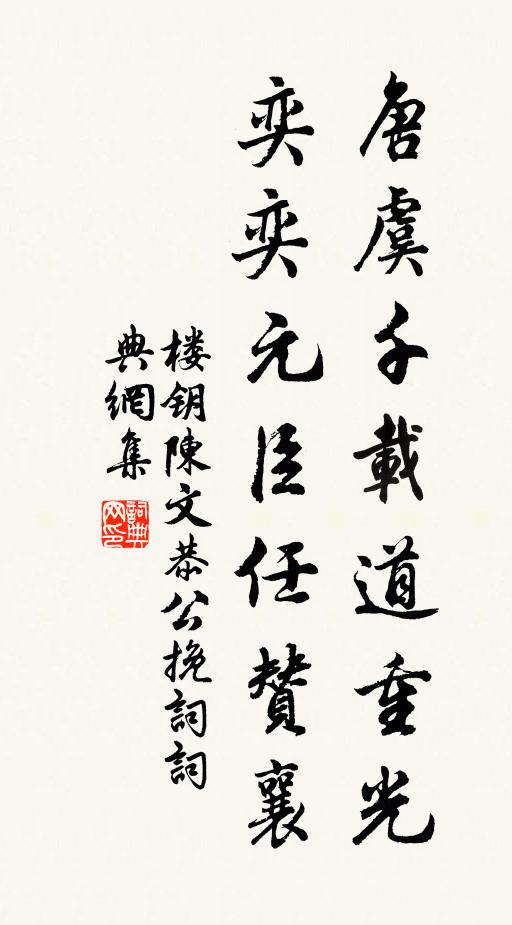 唐虞千載道重光
奕奕元臣任贊襄
楼钥陳文恭公挽詞詞
典網集
詞典网印